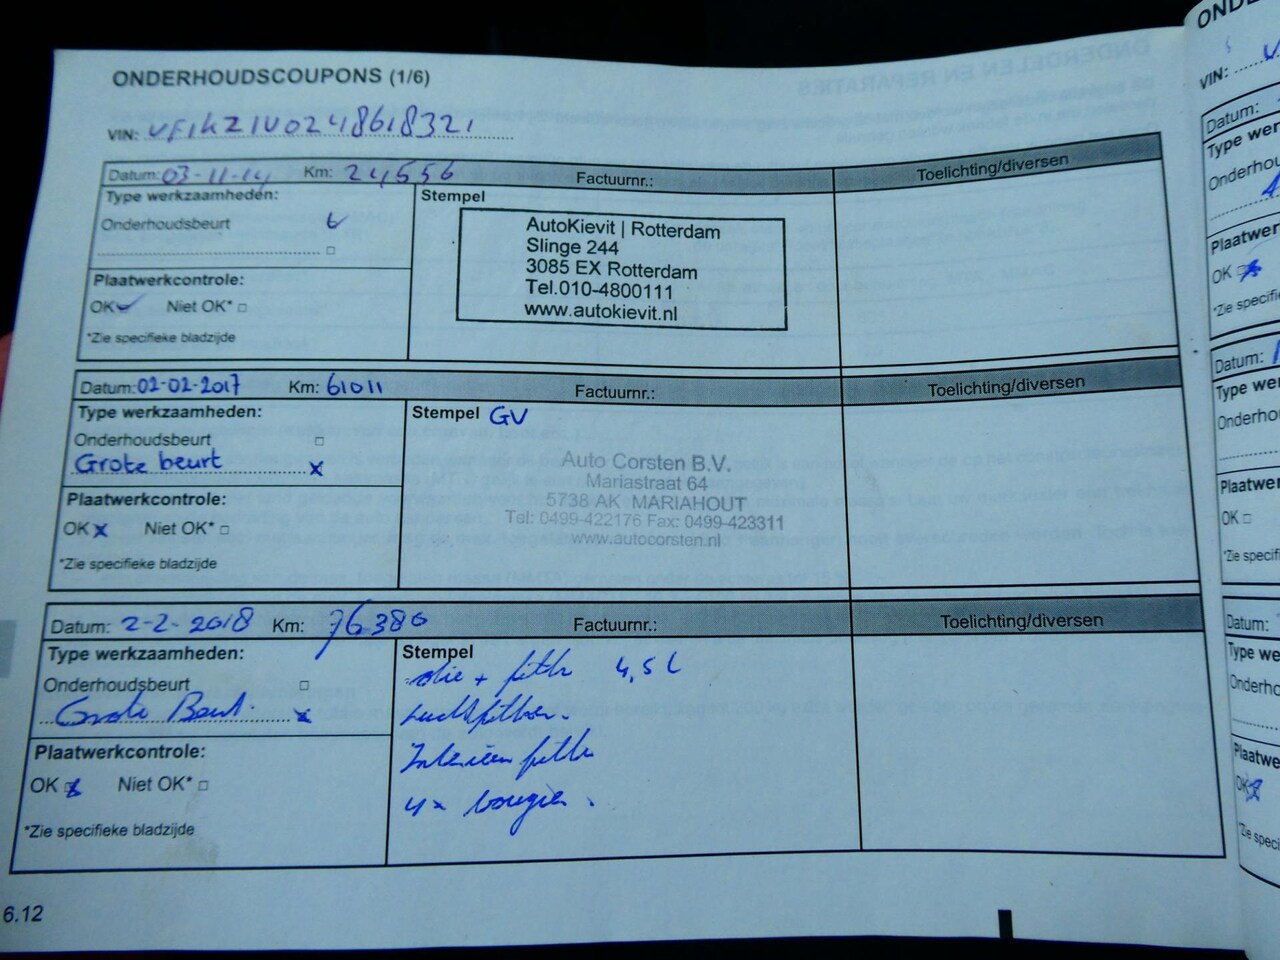 ONDERHOUDSCOUPONS (1/6)
VIN: VF1KZ1U0248618321
Datum: 03-11-14 Km: 24556 Factuurnr.: Toelichting/diversen
Type werkzaamheden:
Onderhoudsbeurt
Plaatwerkcontrole:
OK Niet OK*
*Zie specifieke bladzijde
Stempel
AutoKievit | Rotterdam
Slinge 244
3085 EX Rotterdam
Tel.010-4800111
www.autokievit.nl
Datum: 02-02-2017 Km: 61011 Factuurnr.: Toelichting/diversen
Type werkzaamheden:
Onderhoudsbeurt
Grote beurt x
Plaatwerkcontrole:
OK x Niet OK*
*Zie specifieke bladzijde
Stempel GV
Auto Corsten B.V.
Mariastraat 64
5738 AK MARIAHOUT
Tel: 0499-422176 Fax: 0499-423311
www.autocorsten.nl
Datum: 2-2-2018 Km: 76380 Factuurnr.: Toelichting/diversen
Type werkzaamheden:
Onderhoudsbeurt
Grote Beurt. x
Plaatwerkcontrole:
OK x Niet OK*
*Zie specifieke bladzijde
Stempel
olie + filter 4,5 L
Luchtfilter.
Interieur filter
4x bougie.
6.12
VIN:
Datum:
Type wer
Plaatwer
OK
Datum:
Type wer
Plaatwer
OK
Datum:
Type we
Plaatwe
OK